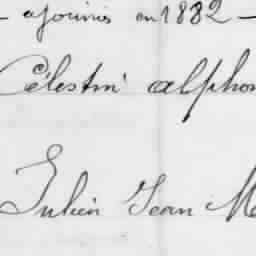 ajournés en 1882
Célestin alphon
Julien Jean M